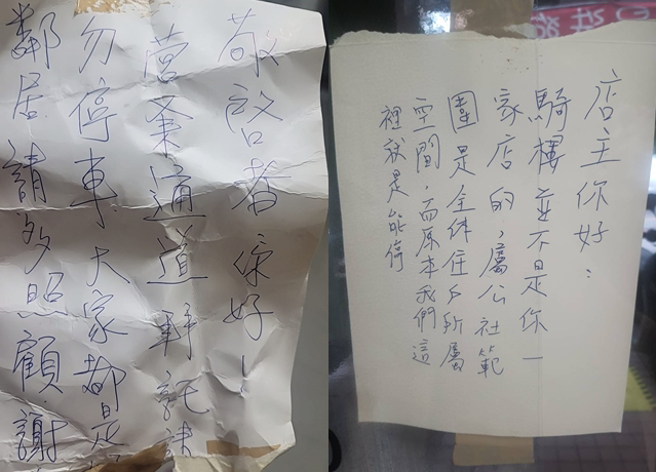 敬啟者你好!
營業通道拜託請
勿停車,大家都是
鄰居請多照顧,謝
店主你好:
騎樓並不是你一
家店的,屬公社範
圍是全体住戶所屬
空間,而原本我們這
裡就是能停